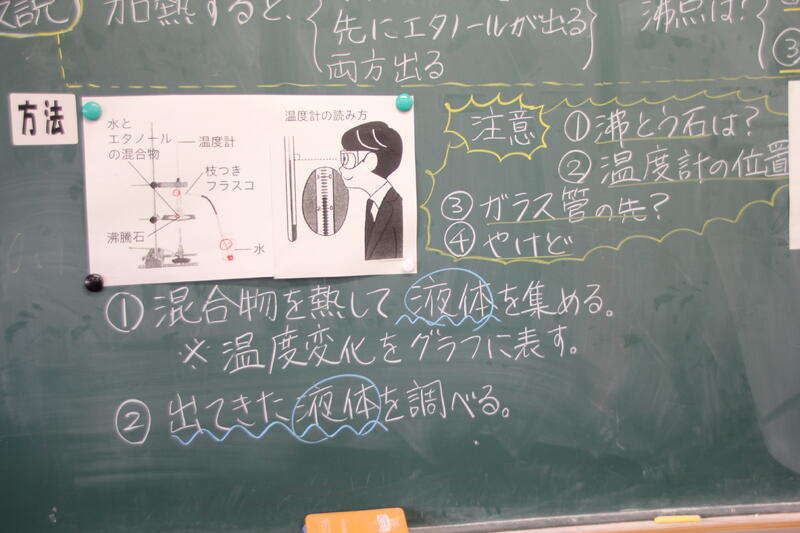 説 加熱すると、
先にエタノールが出る
両方出る
沸点は?
③
方法
水と
エタノール
の混合物
温度計
枝つき
フラスコ
沸騰石
水
温度計の読み方
注意
①沸とう石は?
②温度計の位置
③ガラス管の先?
④やけど
①混合物を熱して液体を集める。
※温度変化をグラフに表す。
②出てきた液体を調べる。